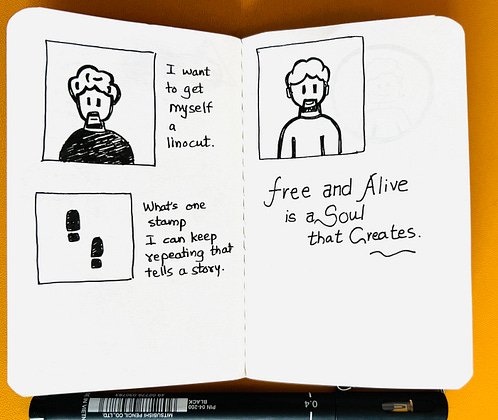 I want
to get
myself
a
linocut.
What's one
stamp
I can keep
repeating that
tells a story.
free and Alive
is a Soul
that Creates.
PIN 04-200
BLACK
MITSUBISHI PENCIL CO., LTD.
0.4